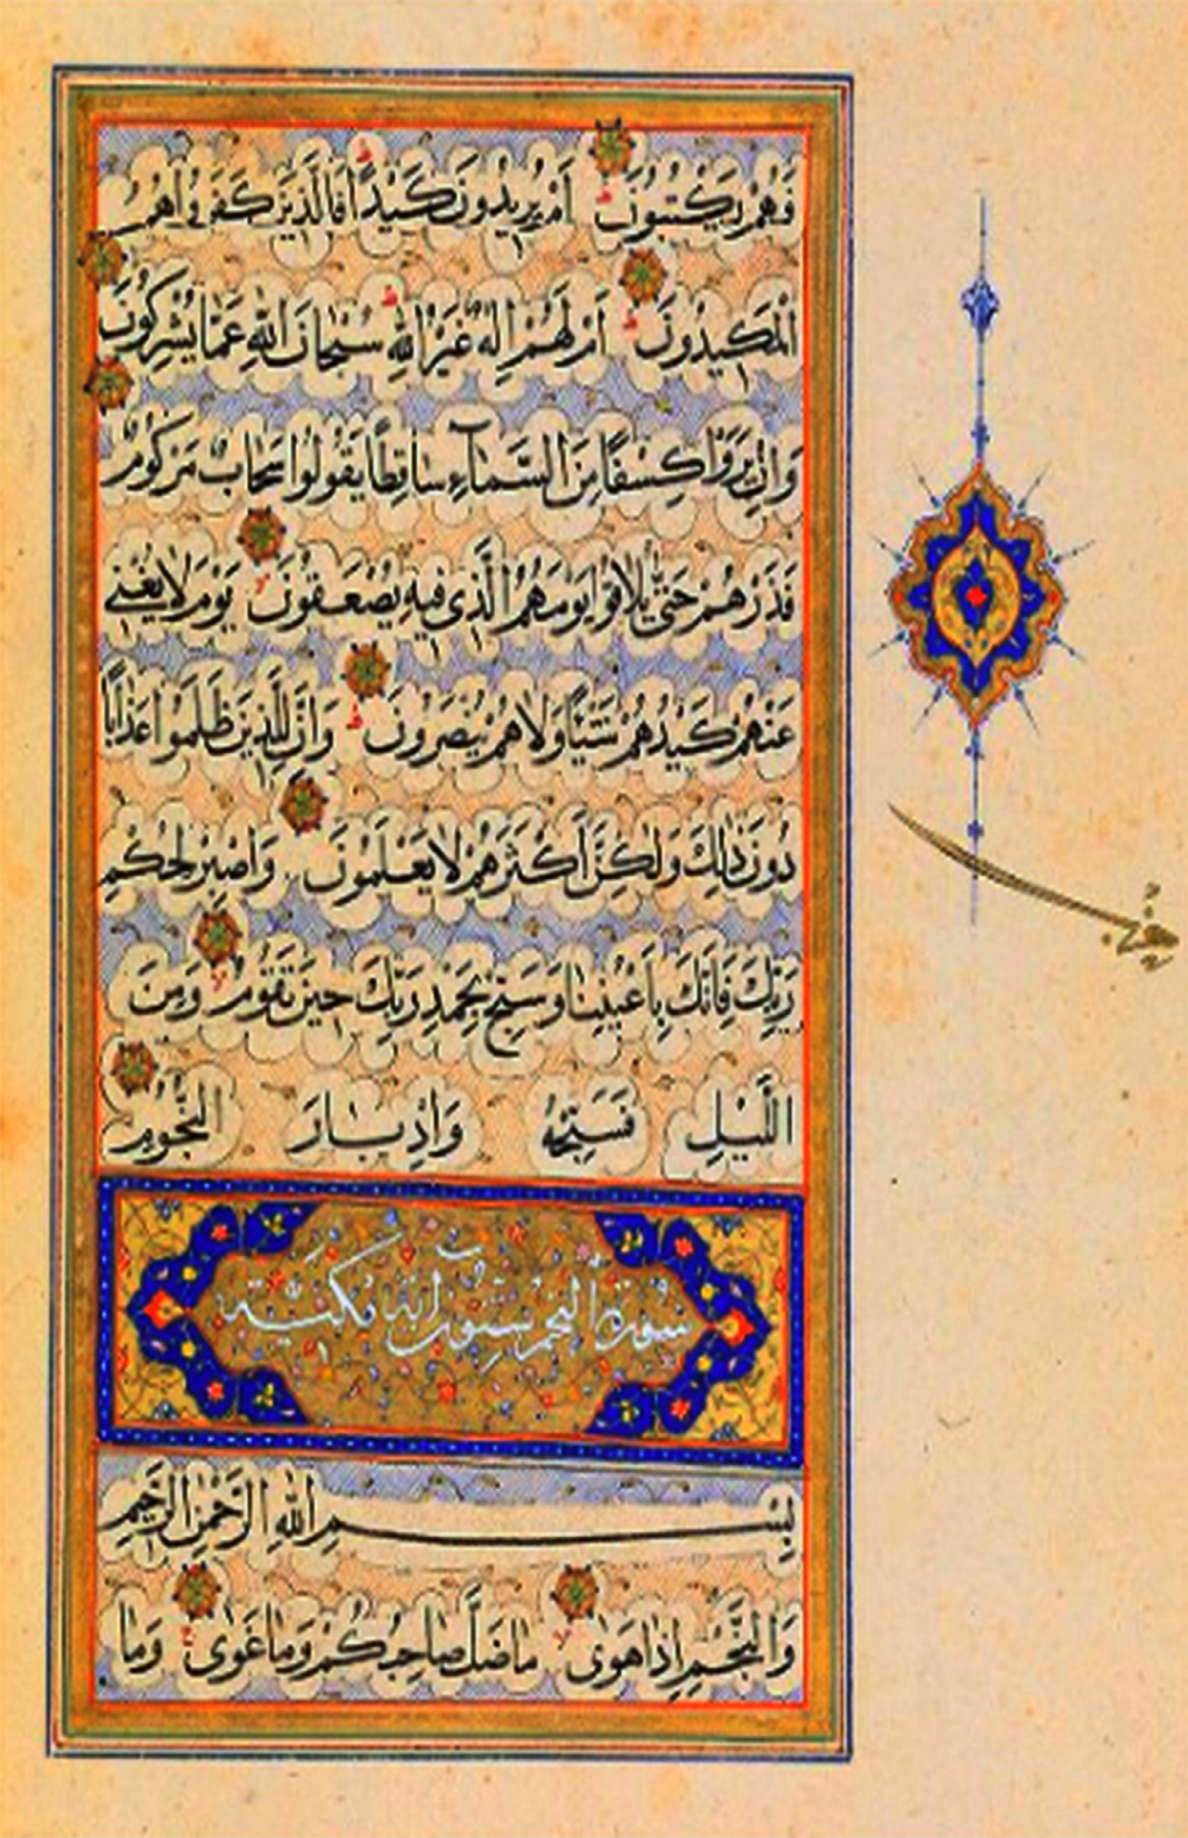 فَهُمْ يَكْتُبُونَ أَمْ يُرِيدُونَ كَيْدًا فَالَّذِينَ كَفَرُوا هُمُ
الْمَكِيدُونَ أَمْ لَهُمْ إِلَهٌ غَيْرُ اللَّهِ سُبْحَانَ اللَّهِ عَمَّا يُشْرِكُونَ
وَإِنْ يَرَوْا كِسْفًا مِنَ السَّمَآءِ سَاقِطًا يَقُولُوا سَحَابٌ مَرْكُومٌ
فَذَرْهُمْ حَتَّى يُلَاقُوا يَوْمَهُمُ الَّذِي فِيهِ يُصْعَقُونَ يَوْمَ لَا يُغْنِي
عَنْهُمْ كَيْدُهُمْ شَيْئًا وَلَا هُمْ يُنْصَرُونَ وَإِنَّ لِلَّذِينَ ظَلَمُوا عَذَابًا
دُونَ ذَلِكَ وَلَكِنَّ أَكْثَرَهُمْ لَا يَعْلَمُونَ وَاصْبِرْ لِحُكْمِ
رَبِّكَ فَإِنَّكَ بِأَعْيُنِنَا وَسَبِّحْ بِحَمْدِ رَبِّكَ حِينَ تَقُومُ وَمِنَ
اللَّيْلِ فَسَبِّحْهُ وَإِدْبَارَ النُّجُومِ
سورة النجم ستون اية مكية
بِسْمِ اللَّهِ الرَّحْمَنِ الرَّحِيمِ
وَالنَّجْمِ إِذَا هَوَى مَا ضَلَّ صَاحِبُكُمْ وَمَا غَوَى وَمَا